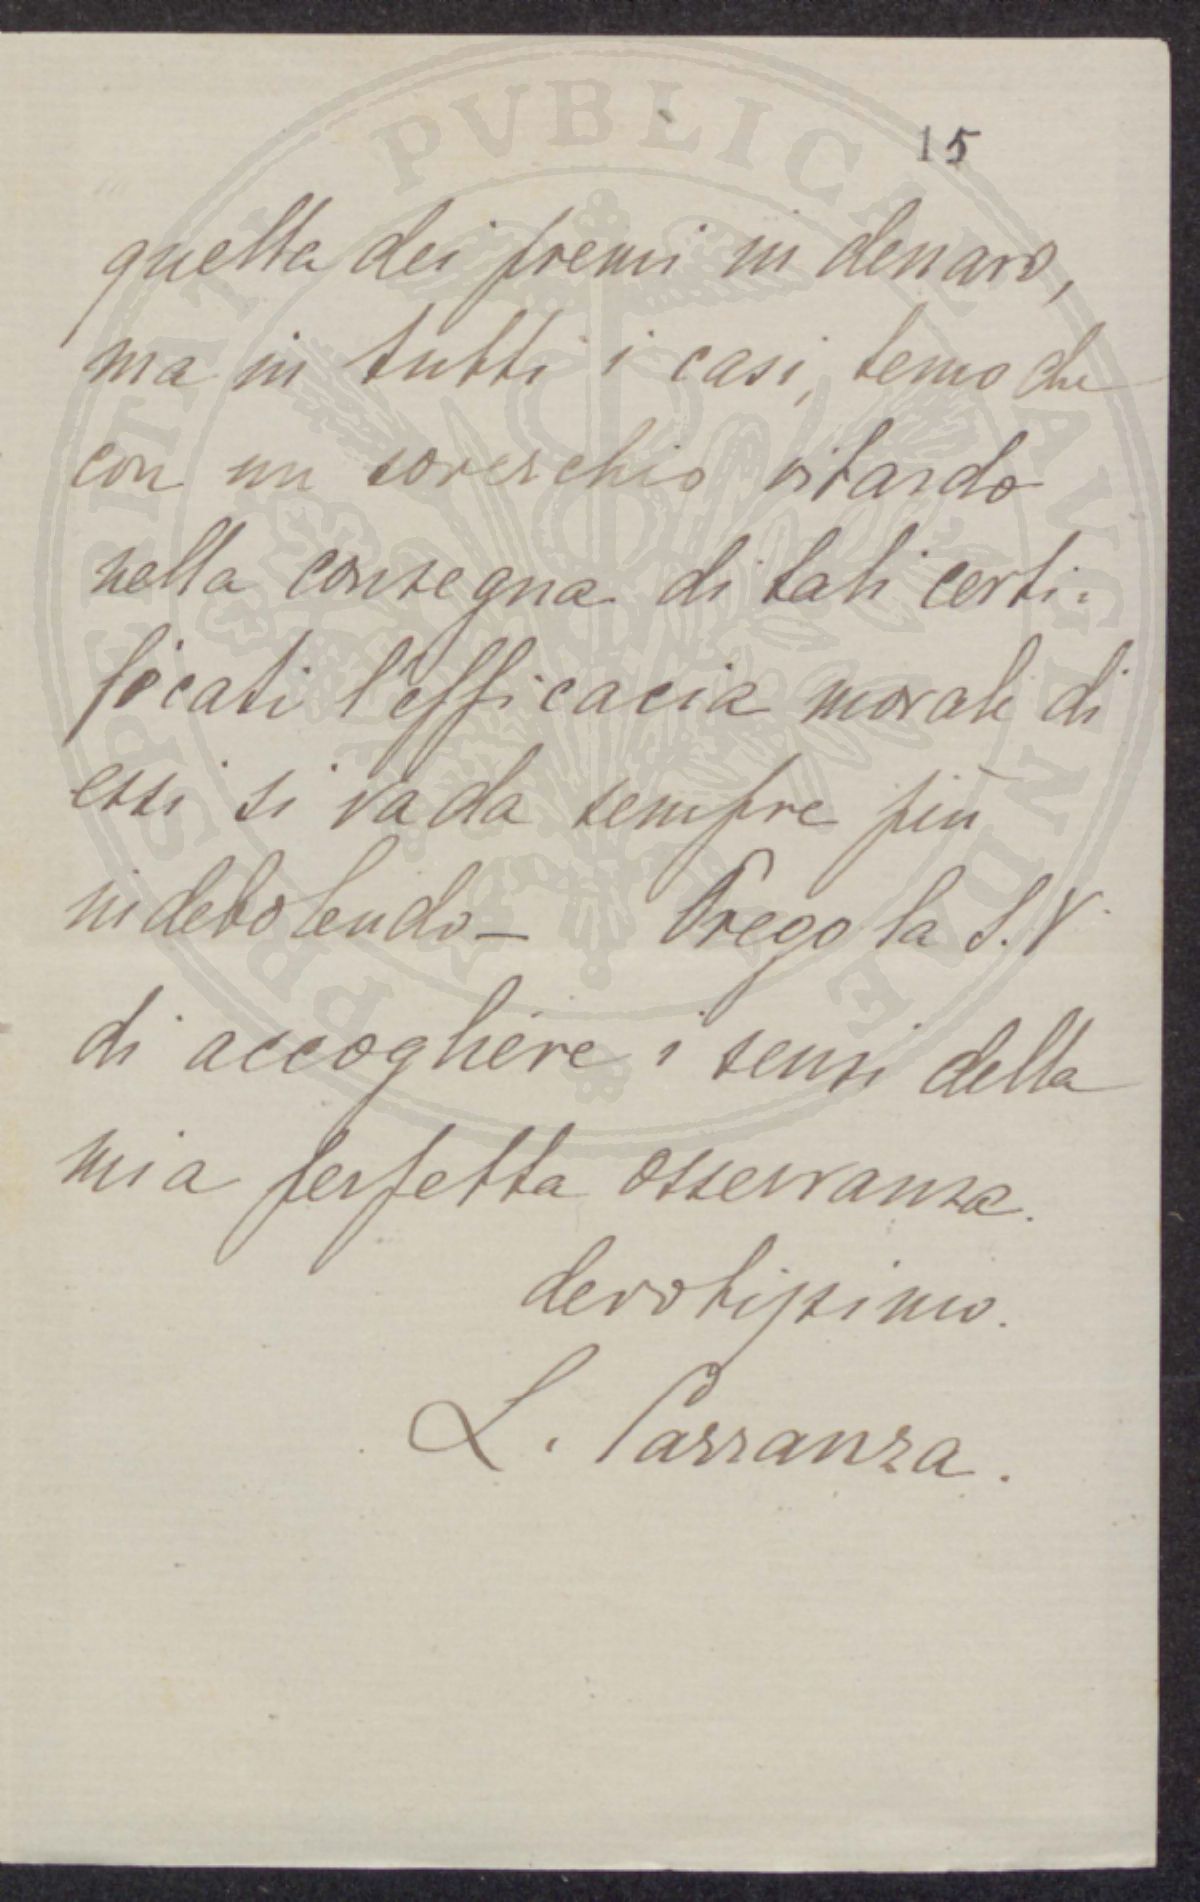 PROSPERITATI PVBLICAE AVGENDAE
15
quella dei premi in denaro,
ma in tutti i casi, temo che
con un soverchio ritardo
nella consegna di tali certi=
ficati l'efficacia morale di
essi si vada sempre più
indebolendo – Prego la S.V.
di accogliere i sensi della
mia perfetta osservanza.
devotissimo.
L. Carranza.